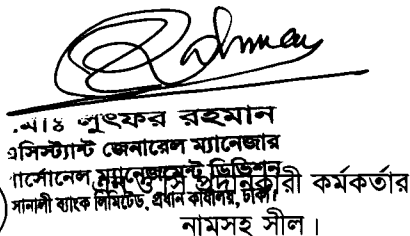 মোঃ লুৎফর রহমান
এসিস্ট্যান্ট জেনারেল ম্যানেজার
পার্সোনেল ম্যানেজমেন্ট ডিভিশন
সোনালী ব্যাংক লিমিটেড, প্রধান কার্যালয়, ঢাকা।
এন ও সি প্রদানকারী কর্মকর্তার
নামসহ সীল।